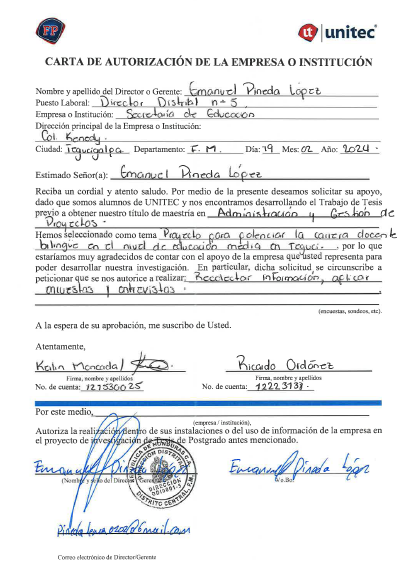 FP
unitec®
CARTA DE AUTORIZACIÓN DE LA EMPRESA O INSTITUCIÓN
Nombre y apellido del Director o Gerente: Emanuel Pineda López
Puesto Laboral: Director Distrital nº 5
Empresa o Institución: Secretaria de Educacion
Dirección principal de la Empresa o Institución:
Col. Kenedy.
Ciudad: Tegucigalpa Departamento: F. M. Día: 19 Mes: 02 Año: 2024
Estimado Señor(a): Emanuel Pineda López
Reciba un cordial y atento saludo. Por medio de la presente deseamos solicitar su apoyo,
dado que somos alumnos de UNITEC y nos encontramos desarrollando el Trabajo de Tesis
previo a obtener nuestro título de maestría en Administración y Gestión de
Proyectos.
Hemos seleccionado como tema Proyecto para potenciar la carrera docente
bilingue en el nivel de educación media en Teguci., por lo que
estaríamos muy agradecidos de contar con el apoyo de la empresa que usted representa para
poder desarrollar nuestra investigación. En particular, dicha solicitud se circunscribe a
peticionar que se nos autorice a realizar: Recolectar Información, aplicar
encuestas y entrevistas.
(encuestas, sondeos, etc).
A la espera de su aprobación, me suscribo de Usted.
Atentamente,
Keilin Moncada Ricardo Ordóñez
Firma, nombre y apellidos Firma, nombre y apellidos
No. de cuenta: No. de cuenta:
Por este medio,
(empresa / institución),
Autoriza la realización dentro de sus instalaciones o del uso de información de la empresa en
el proyecto de investigación de Tesis de Postgrado antes mencionado.
Emanuel Pineda López Emanuel Pineda López
(Nombre y sello del Director / Gerente) Vo.Bo.
Correo electrónico de Director/Gerente